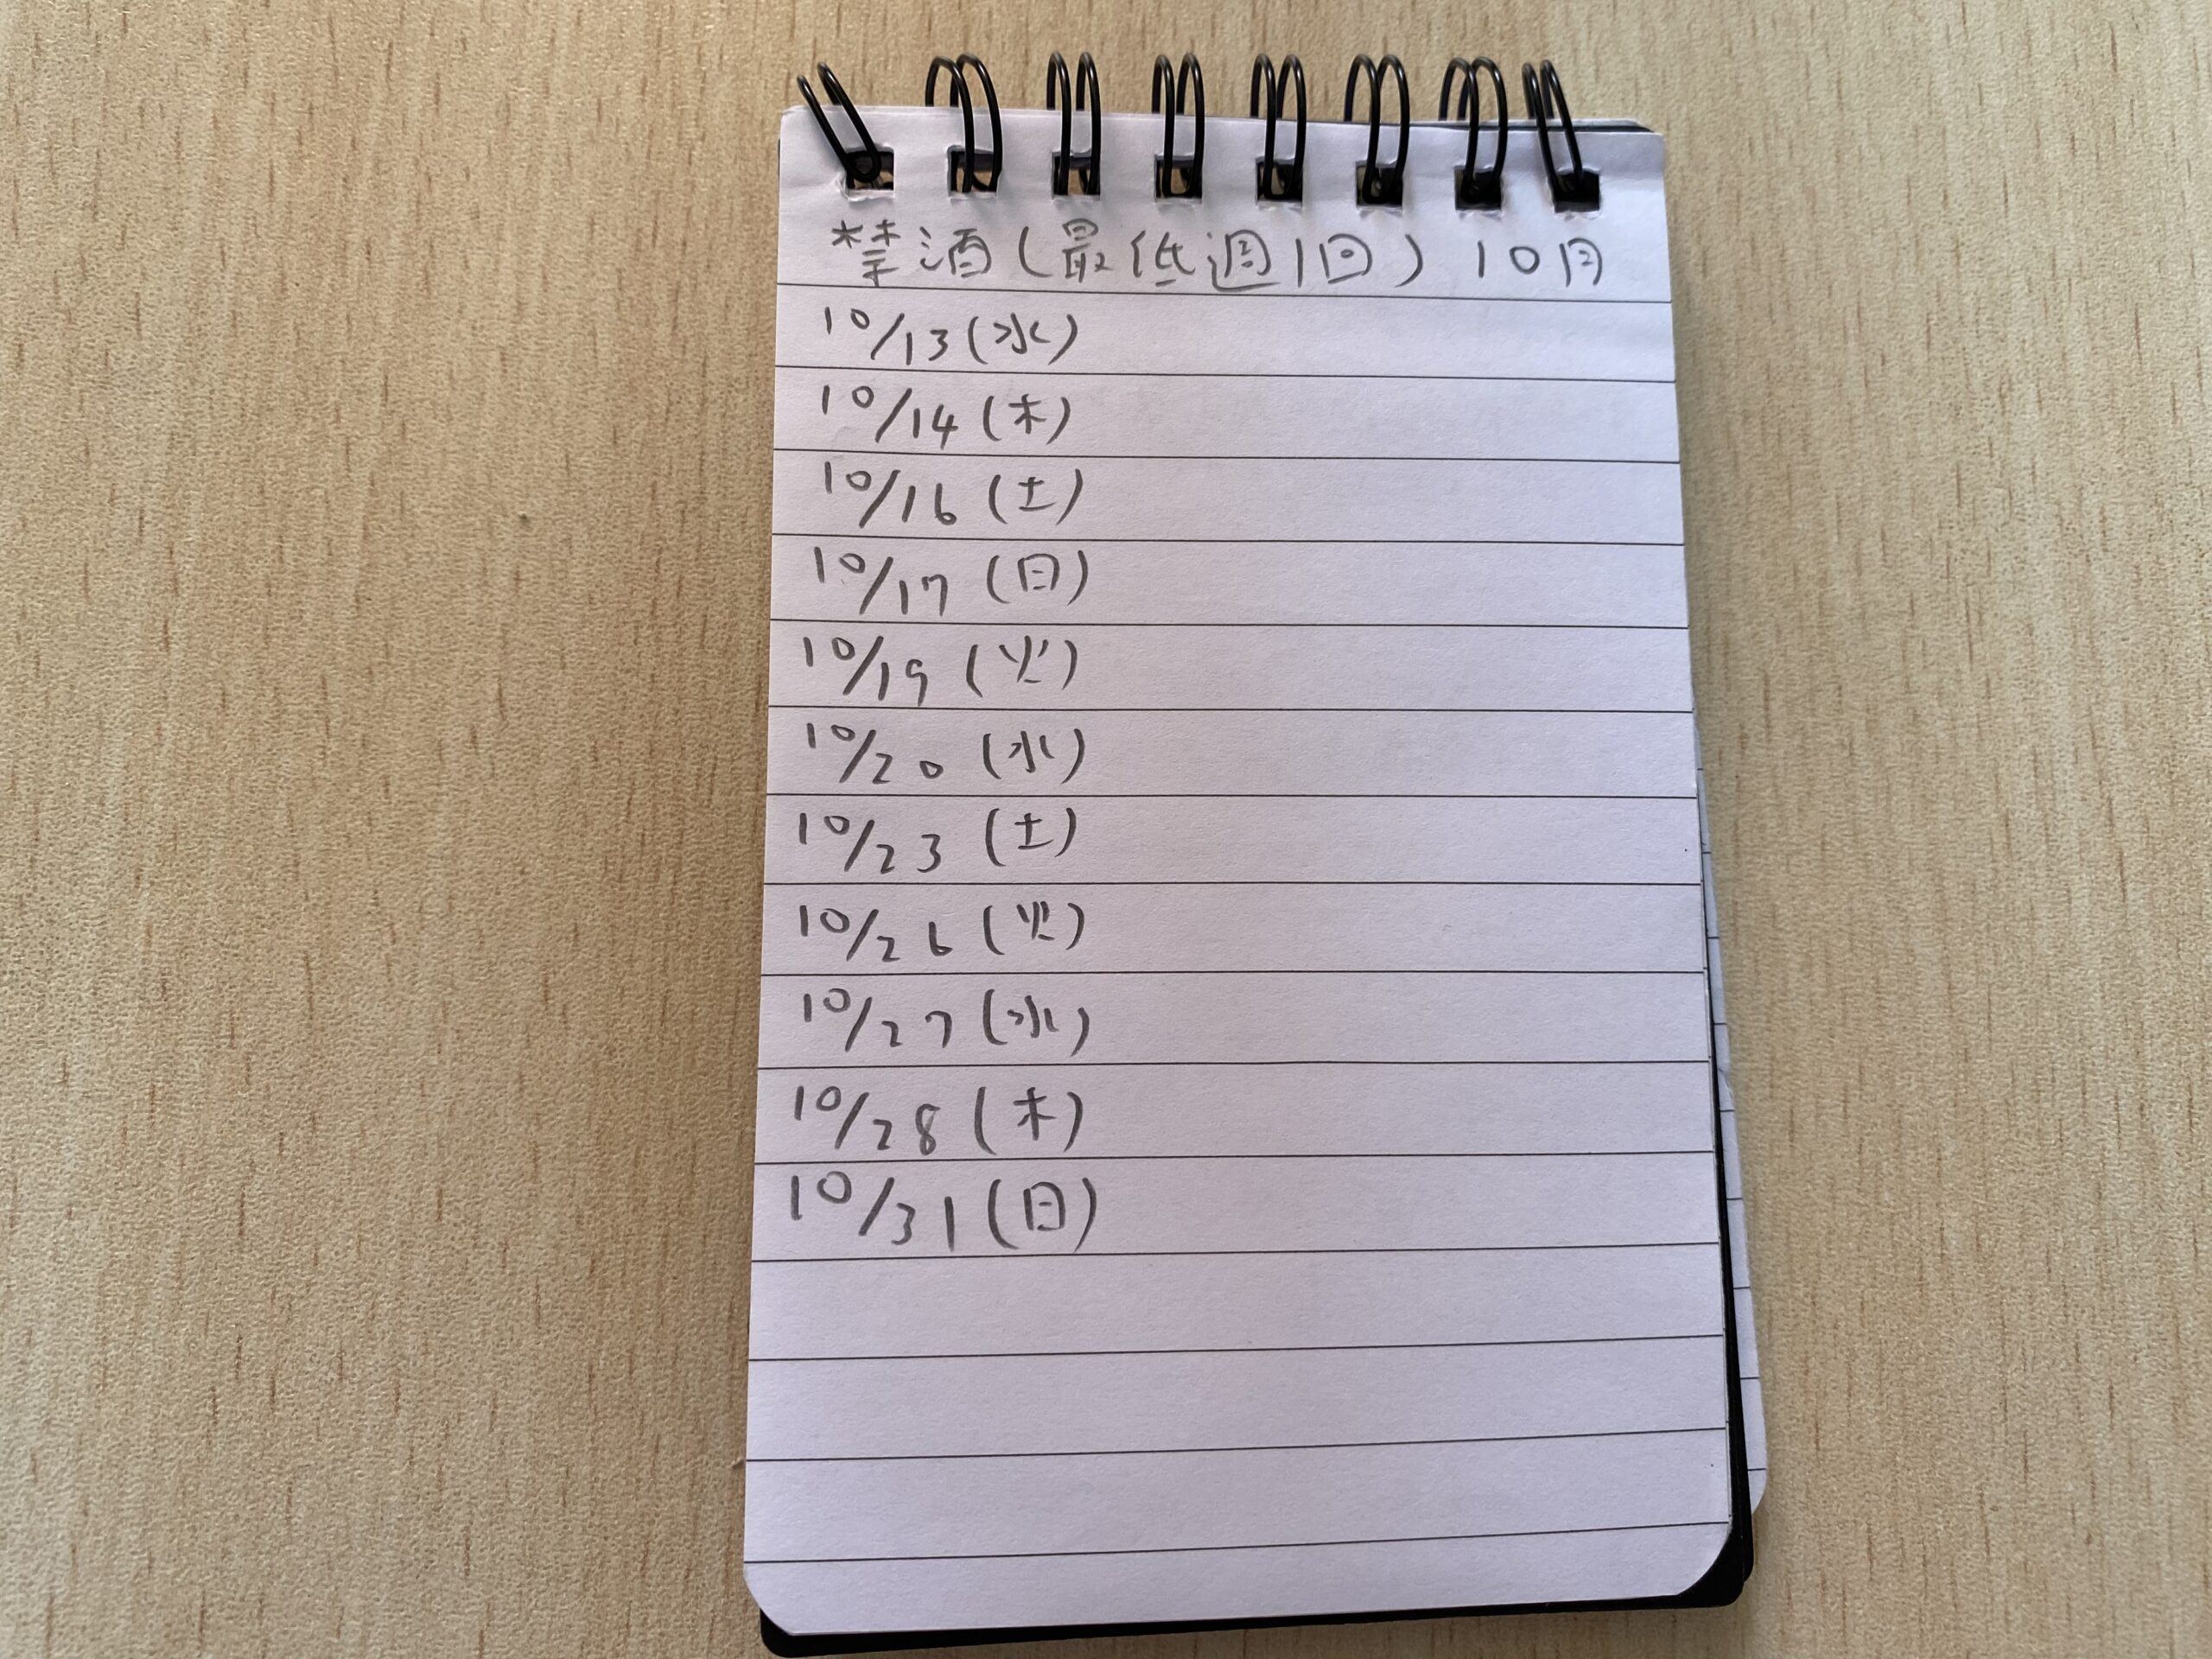 禁酒(最低週1回) 10月
10/13(水)
10/14(木)
10/16(土)
10/17(日)
10/19(火)
10/20(水)
10/23(土)
10/26(火)
10/27(水)
10/28(木)
10/31(日)